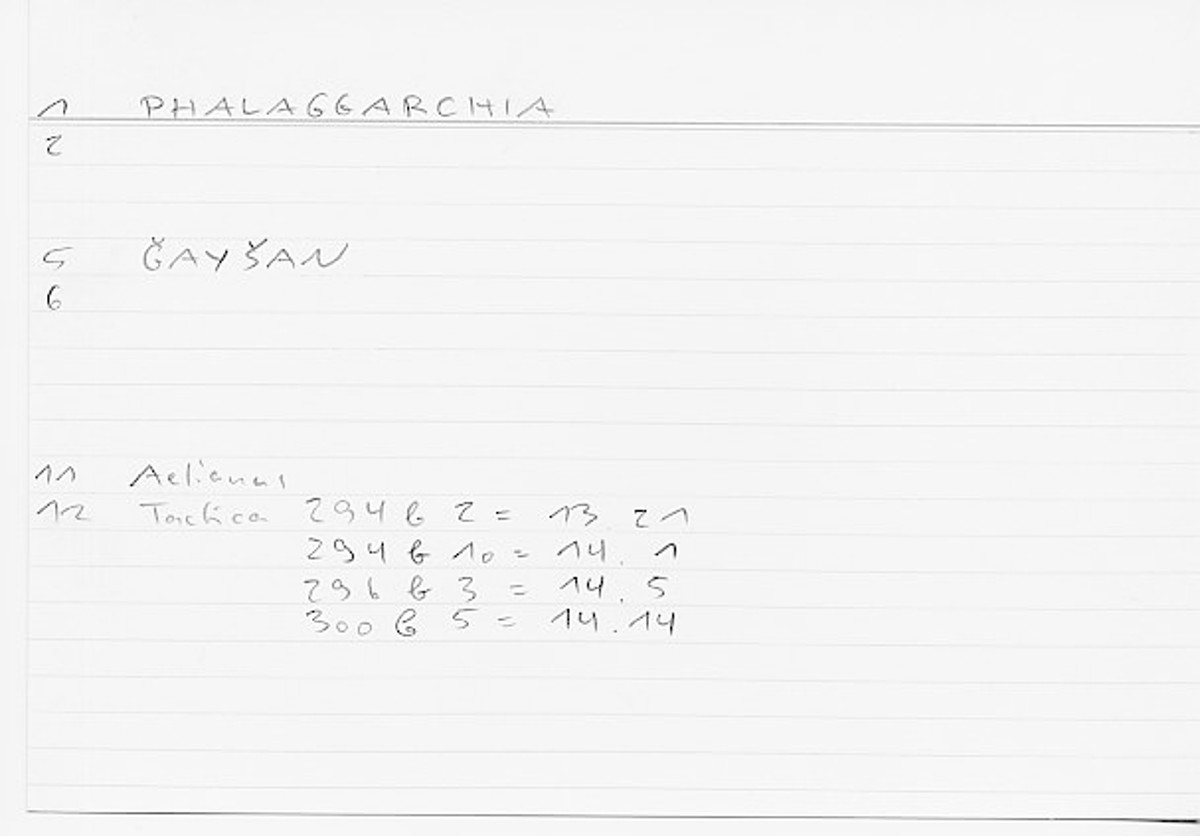 1 PHALAGGARCHIA
2
5 ǦAYŠAN
6
11 Aelianus
12 Tactica 294 b 2 = 13 21
294 b 10 = 14. 1
296 b 3 = 14. 5
300 b 5 = 14.14